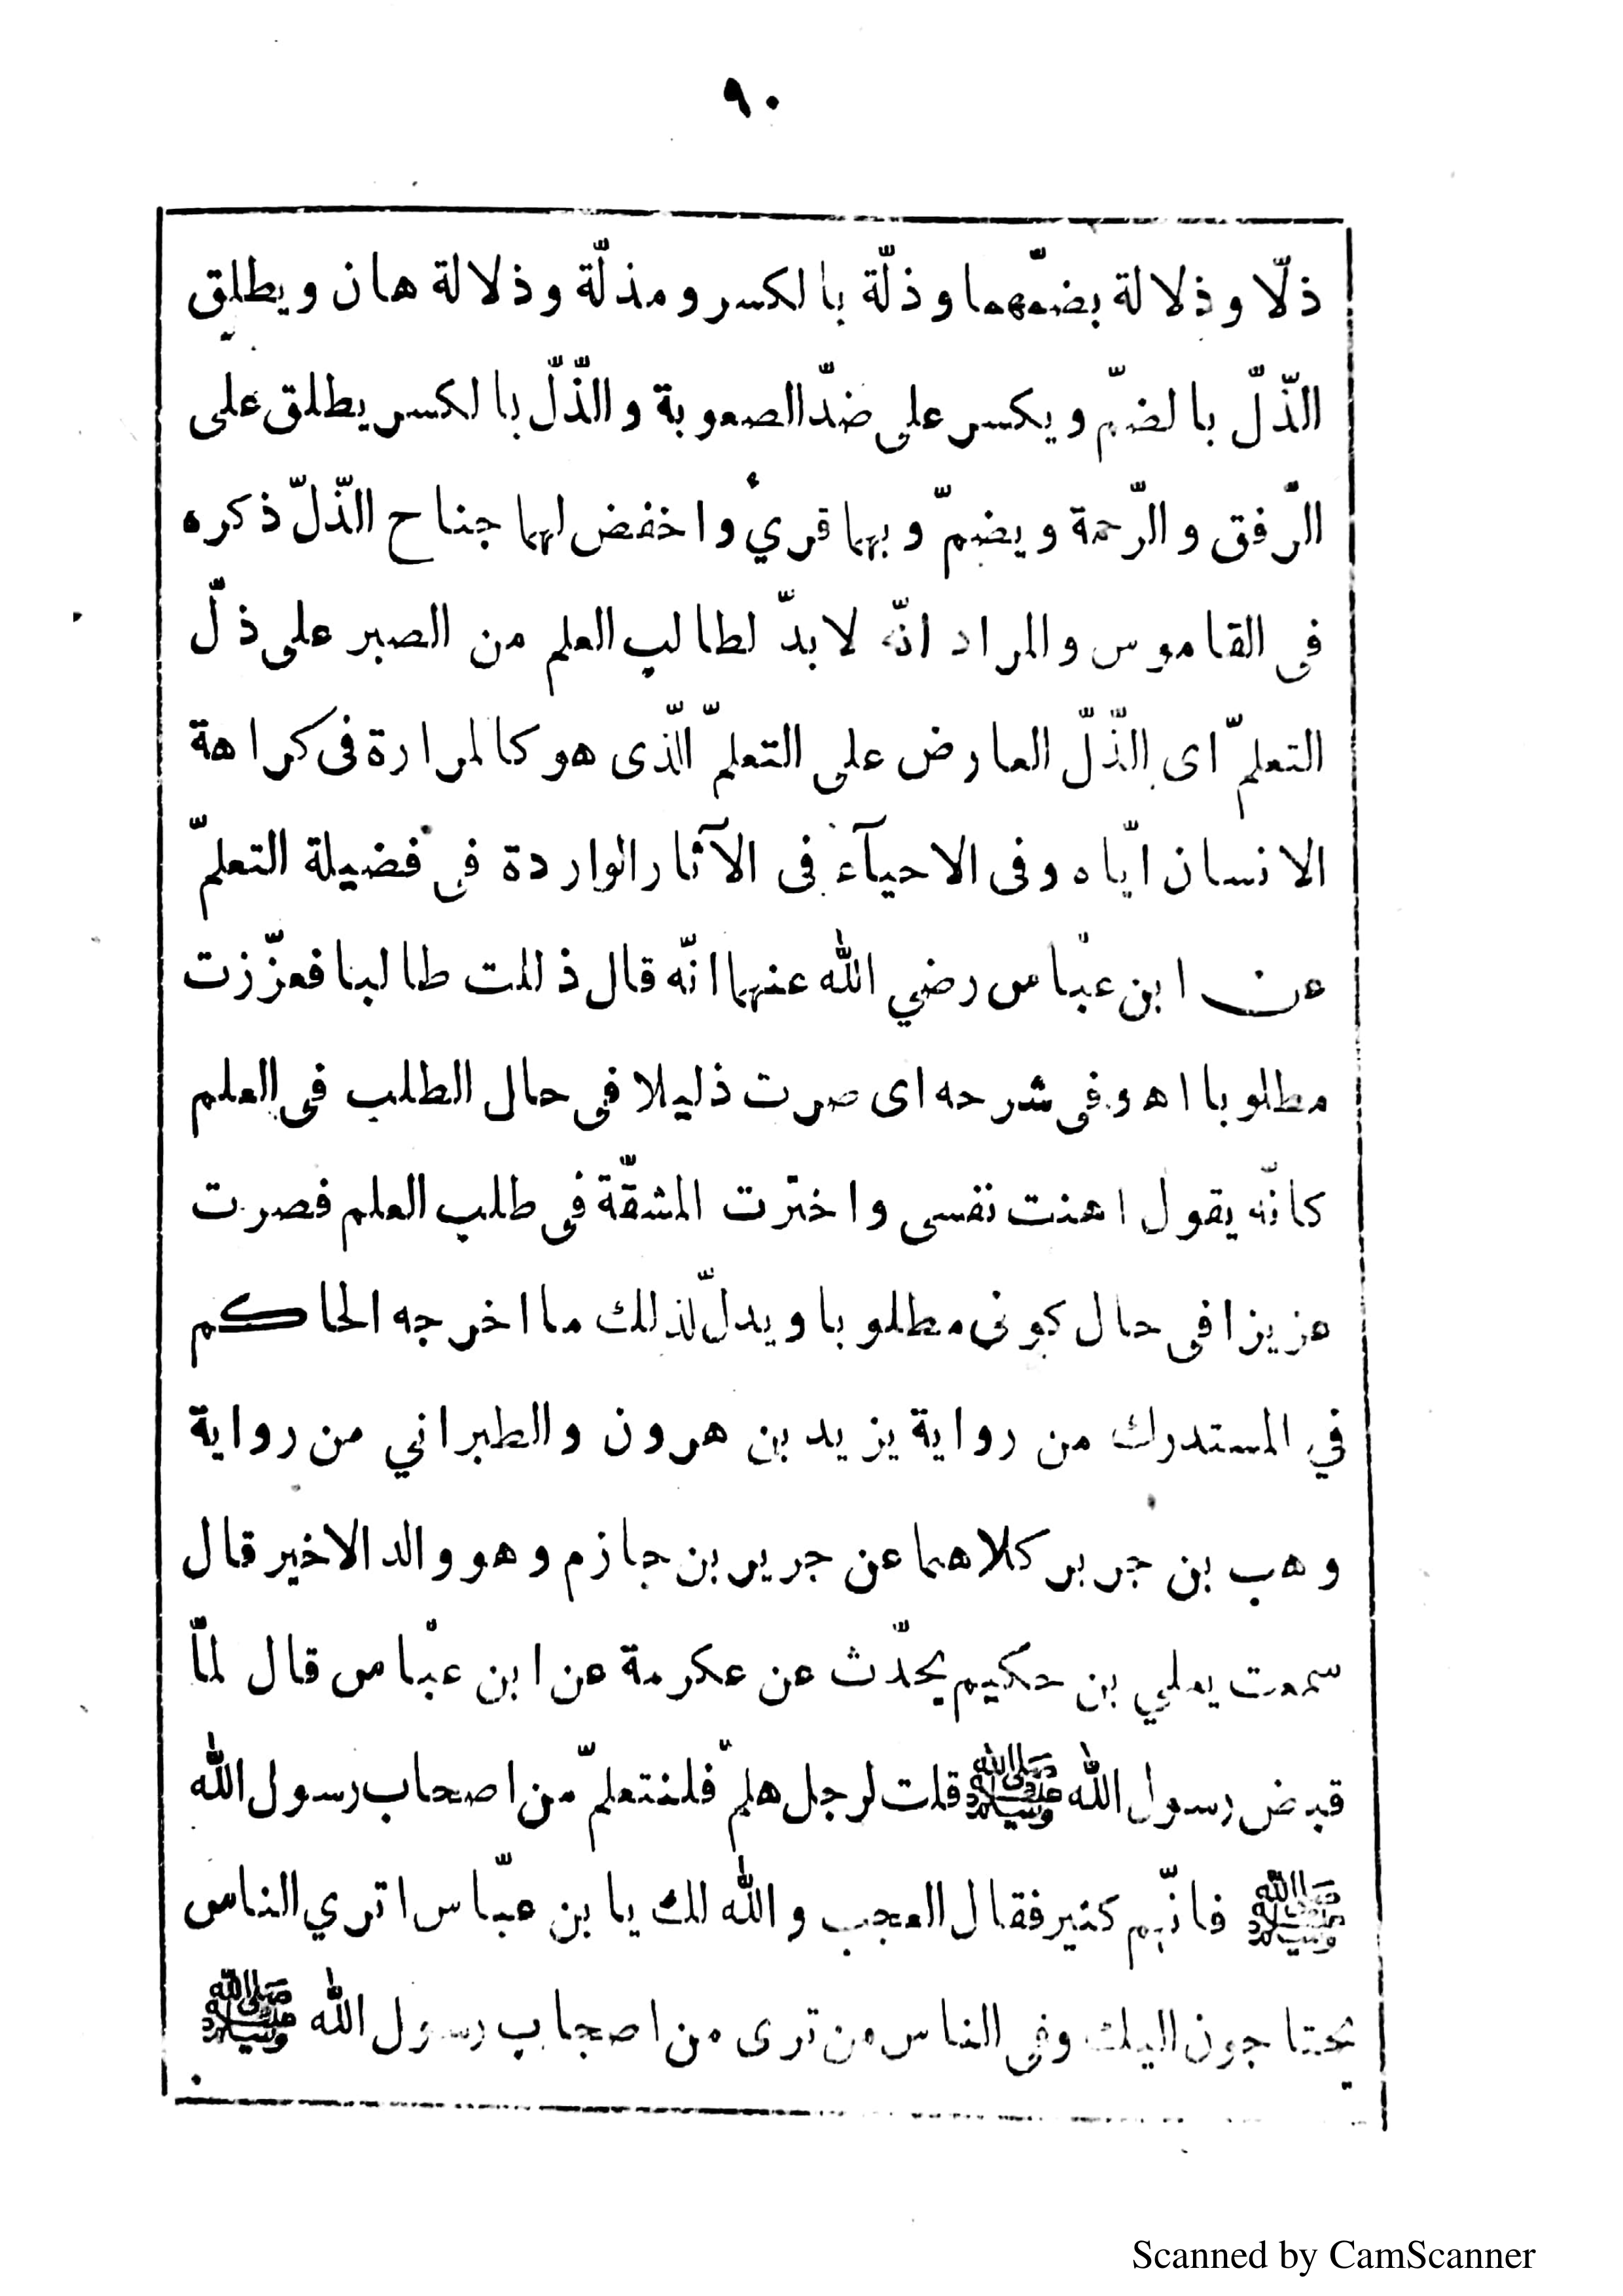 ٩٠
ذلّا وذلالة بضمّهما وذلّة بالكسر ومذلّة وذلالة هان ويطلق
الذّلّ بالضمّ ويكسر على ضدّ الصعوبة والذّلّ بالكسر يطلق على
الرّفق والرّحمة ويضمّ وبهما قرئ واخفض لهما جناح الذّلّ ذكره
فى القاموس والمراد انّه لابدّ لطالب العلم من الصبر على ذلّ
التعلمّ اى الذّلّ العارض على التعلمّ الّذى هو كالمرارة فى كراهة
الانسان ايّاه وفى الاحيآء فى الآثار الواردة فى فضيلة التعلمّ
عن ابن عبّاس رضي الله عنهما انّه قال ذللت طالبا فعزّزت
مطلوبا اه وفى شرحه اى صرت ذليلا فى حال الطلب فى العلم
كانّه يقول اهنت نفسى واخترت المشقّة فى طلب العلم فصرت
عزيزا فى حال كونى مطلوبا ويدلّ لذلك ما اخرجه الحاكم
في المستدرك من رواية يزيد بن هرون والطبراني من رواية
وهب بن جرير كلاهما عن جرير بن جازم وهو والد الاخير قال
سمعت يعلي بن حكيم يحدّث عن عكرمة عن ابن عبّاس قال لمّا
قبض رسول الله ﷺ قلت لرجل هلمّ فلنتعلمّ من اصحاب رسول الله
ﷺ فانّهم كثير فقال العجب والله لك يا بن عبّاس اترى الناس
يحتاجون اليك وفى الناس من ترى من اصحاب رسول الله ﷺ
Scanned by CamScanner